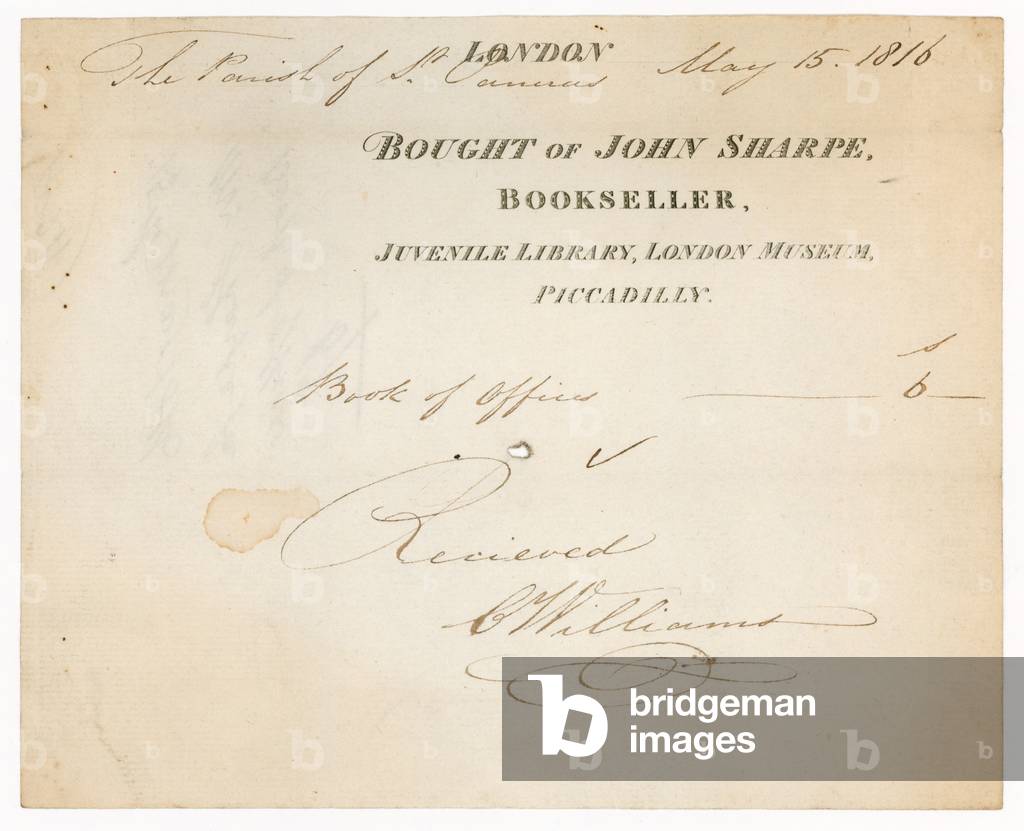 LONDON
The Parish of St. Pancras May 15. 1816
BOUGHT OF JOHN SHARPE,
BOOKSELLER,
JUVENILE LIBRARY, LONDON MUSEUM,
PICCADILLY.
s
Book of Offices 6
Recieved
C Williams
bridgeman
images